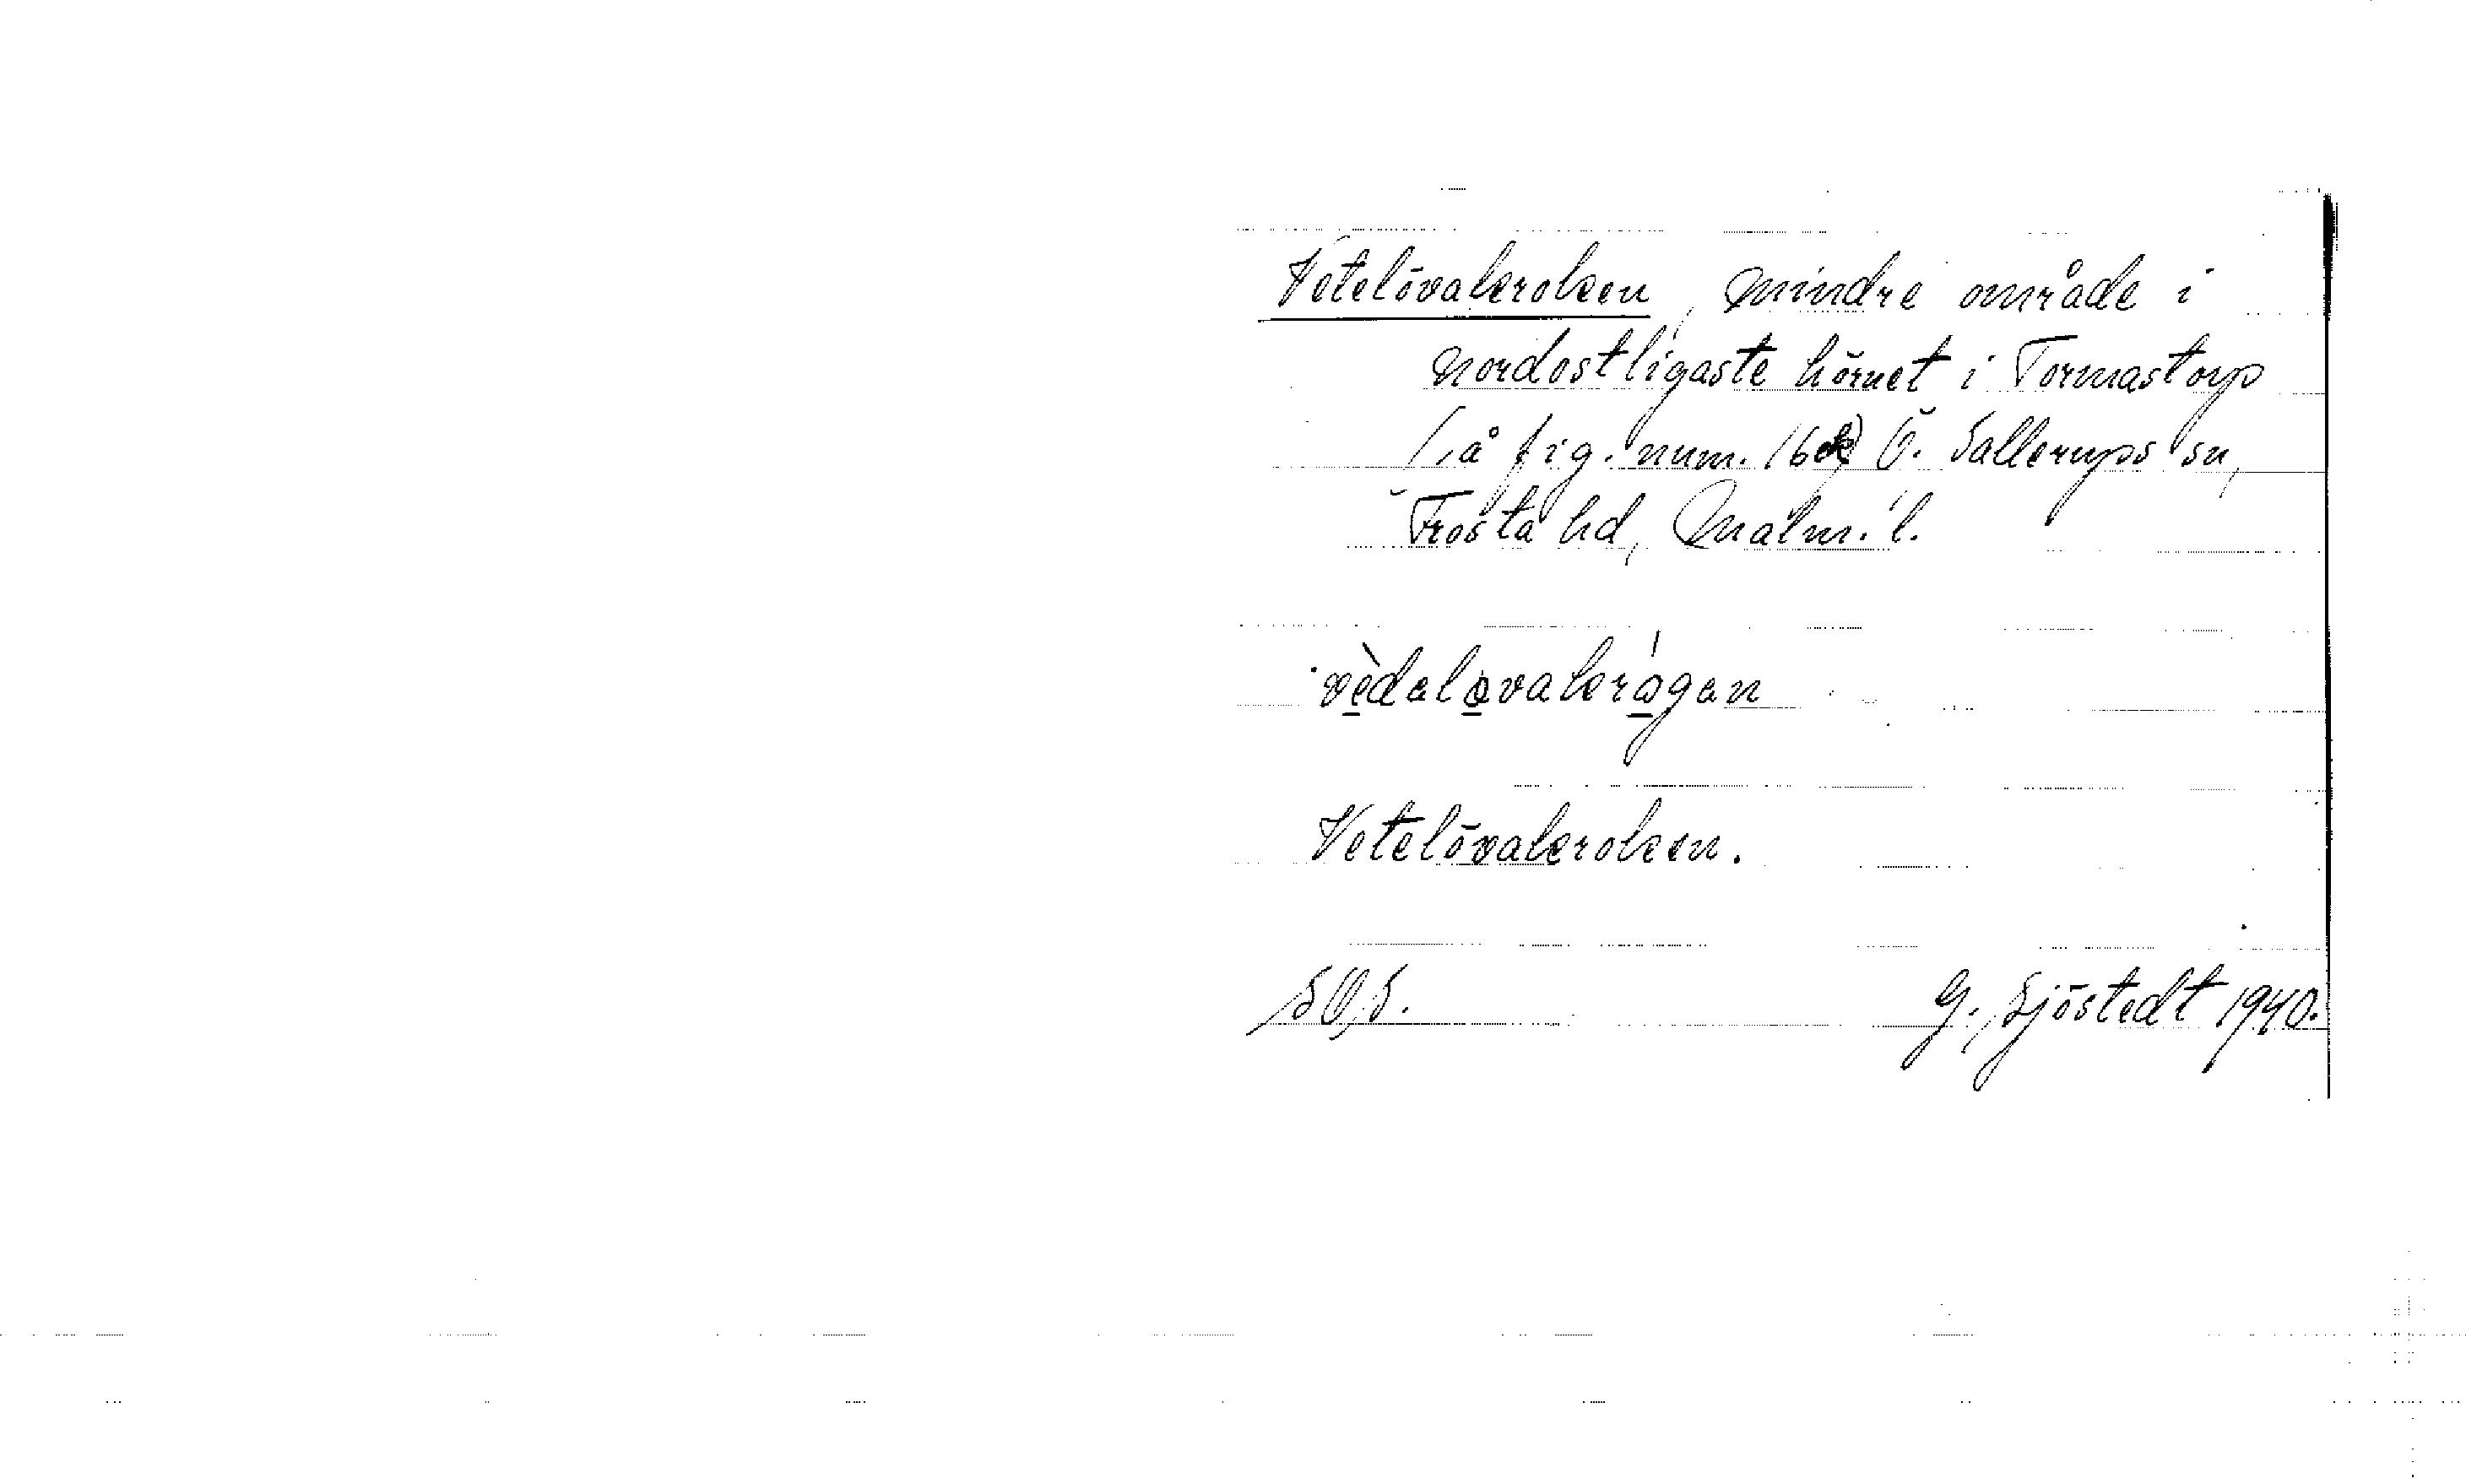 Vetelövakroken, mindre område i
nordostligaste hörnet i Tormastorp
(å fig. num. 16 Ö. Sallerups sn,
Frosta hd, Malm. l.
vèdalövakrógan
Vetelövakroken.
SOS. G. Sjöstedt 1940.